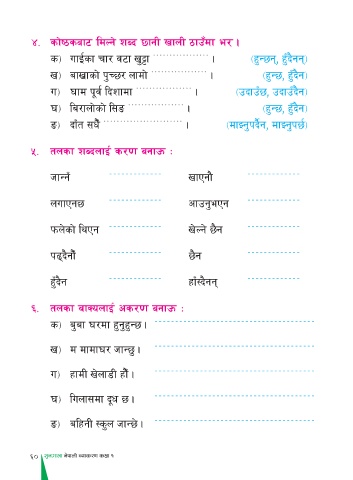 ४. कोष्ठकबाट मिल्ने शब्द छानी खाली ठाउँमा भर ।
क) गाईका चार वटा खुट्टा ................... । (हुन्छन्, हुँदैनन्)
ख) बाख्राको पुच्छर लामो ................... । (हुन्छ, हुँदैन)
ग) घाम पूर्व दिशामा ................... । (उदाउँछ, उदाउँदैन)
घ) बिरालोको सिङ ................... । (हुन्छ, हुँदैन)
ङ) दाँत सधैँ ........................... । (माझ्नुपर्दैन, माझ्नुपर्छ)
५. तलका शब्दलाई करण बनाऊ :
जान्नँ ------------- खाएनौ -------------
लगाएनछ ------------- आउनुभएन -------------
फलेको थिएन ------------- खेल्ने छैन -------------
पढ्दैनौँ ------------- छैन -------------
हुँदैन ------------- हाँस्दैनन् -------------
६. तलका वाक्यलाई अकरण बनाऊ :
क) बुबा घरमा हुनुहुन्छ । ---------------------------------------
ख) म मामाघर जान्छु । ---------------------------------------
ग) हामी खेलाडी हौँ । ---------------------------------------
घ) गिलासमा दूध छ । ---------------------------------------
ङ) बहिनी स्कुल जान्छे । ---------------------------------------
६० नेपाली व्याकरण कक्षा १